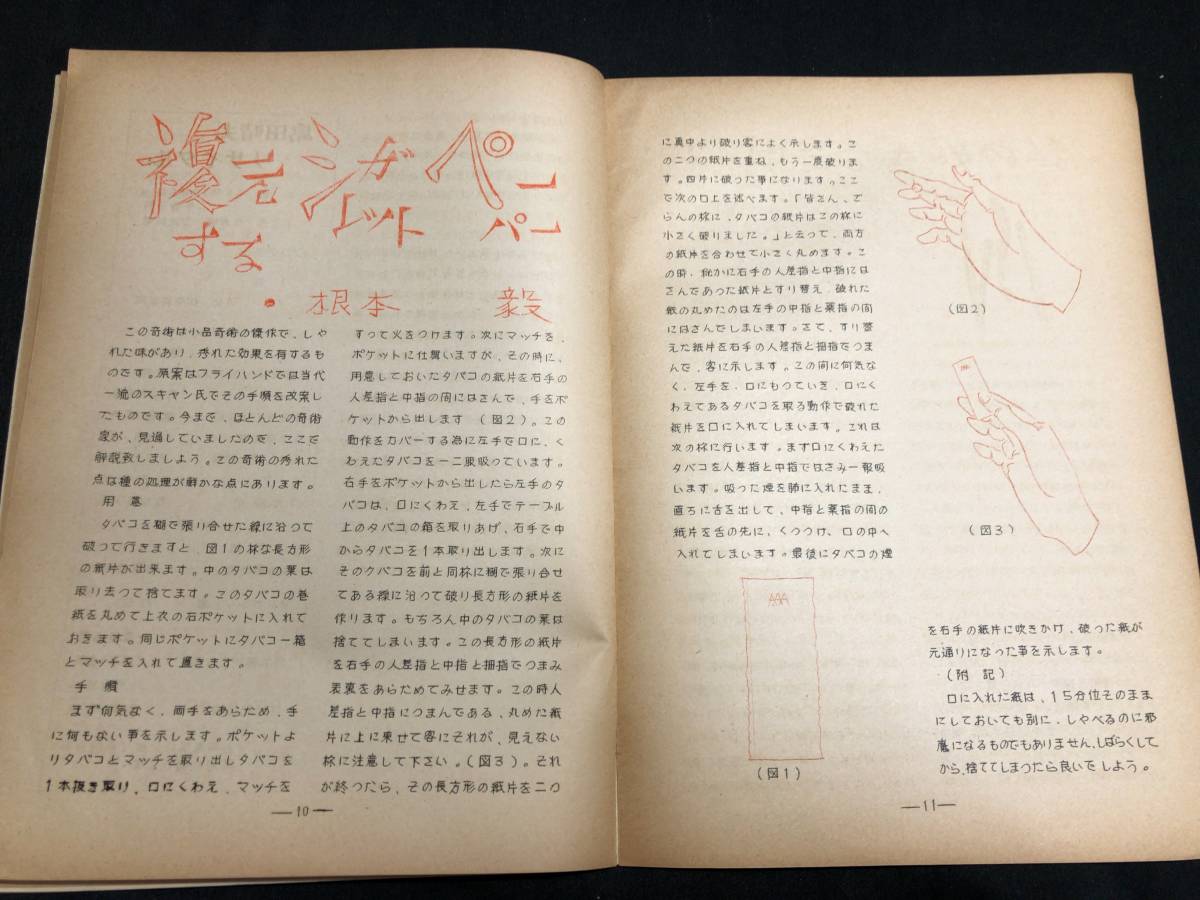 複元シガレットペーパー
する
・根本 毅
この奇術は小品奇術の傑作で、しゃ
れた味があり、秀れた効果を有するも
のです。原案はフライハンドでは当代
一流のスキャン氏でその手順を改案し
たものです。今まで、ほとんどの奇術
家が、見過していましたので、ここで
解説致しましよう。この奇術の秀れた
点は種の処理が鮮かな点にあります。
用意
タバコを糊で張り合せた線に沿って
破って行きますと、図1の様な長方形
の紙片が出来ます。中のタバコの葉は
取り去って捨てます。このタバコの巻
紙を丸めて上衣の右ポケットに入れて
おきます。同じポケットにタバコ一箱
とマッチを入れて置きます。
手順
まず何気なく、両手をあらため、手
に何もない事を示します。ポケットよ
りタバコとマッチを取り出しタバコを
1本抜き取り、口にくわえ、マッチを
すって火をつけます。次にマッチを、
ポケットに仕舞いますが、その時に、
用意しておいたタバコの紙片を右手の
人差指と中指の間にはさんで、手をポ
ケットから出します (図2)。この
動作をカバーする為に左手で口に、く
わえたタバコを一二服吸っています。
右手をポケットから出したら左手のタ
バコは、口にくわえ、左手でテーブル
上のタバコの箱を取りあげ、右手で中
からタバコを1本取り出します。次に
そのタバコを前と同様に糊で張り合せ
てある線に沿って破り長方形の紙片を
作ります。もちろん中のタバコの葉は
捨ててしまいます。この長方形の紙片
を右手の人差指と中指と拇指でつまみ
表裏をあらためてみせます。この時人
差指と中指につまんである、丸めた紙
片に上に乗せて客にそれが、見えない
様に注意して下さい。(図3)。それ
が終ったら、その長方形の紙片を二つ
—10—
に真中より破り客によく示します。こ
の二つの紙片を重ね、もう一度破りま
す。四片に破った事になります。ここ
で次の口上を述べます。「皆さん、ご
らんの様に、タバコの紙片はこの様に
小さく破りました。」と云って、両方
の紙片を合わせて小さく丸めます。こ
の時、秘かに右手の人差指と中指には
さんであった紙片とすり替え、破れた
紙の丸めたのは左手の中指と薬指の間
にはさんでしまいます。さて、すり替
えた紙片を右手の人差指と拇指でつま
んで、客に示します。この間に何気な
く、左手を、口にもつていき、口にく
わえてあるタバコを取る動作で破れた
紙片を口に入れてしまいます。これは
次の様に行います。まず口にくわえた
タバコを人差指と中指ではさみ一服吸
います。吸った煙を肺に入れたまま、
直ちに舌を出して、中指と薬指の間の
紙片を舌の先に、くっつけ、口の中へ
入れてしまいます。最後にタバコの煙
(図2)
(図3)
AAA
(図1)
を右手の紙片に吹きかけ、破った紙が
元通りになった事を示します。
(附記)
口に入れた紙は、15分位そのまま
にしておいても別に、しゃべるのに邪
魔になるものでもありません、しばらくして
から、捨ててしまつたら良いでしよう。
—11—